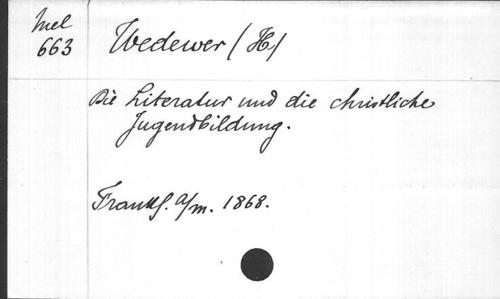 Mel
663
Wedewer (H)
Die Literatur und die christliche
Jugendbildung.
Frankf. a/m. 1868.